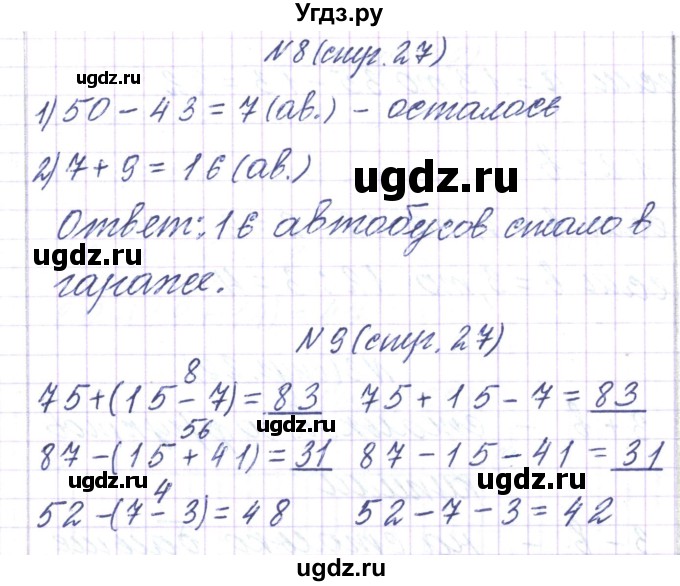 Угдз.ру
№8 (стр. 27)
ugdz.ru ugdz.ru
1) 50 - 43 = 7 (ав.) - осталось
2) 7 + 9 = 16 (ав.)
ugdz.ru
Ответ: 16 автобусов стало в
ugdz.ru
гараже.
ugdz.ru
№9 (стр. 27)
8
75+(15-7)=83 75+15-7=83
ugdz.ru
56
87-(15+41)=31 87-15-41=31
ugdz.ru ugdz.ru
4
52-(7-3)=48 52-7-3=42
ugdz.ru